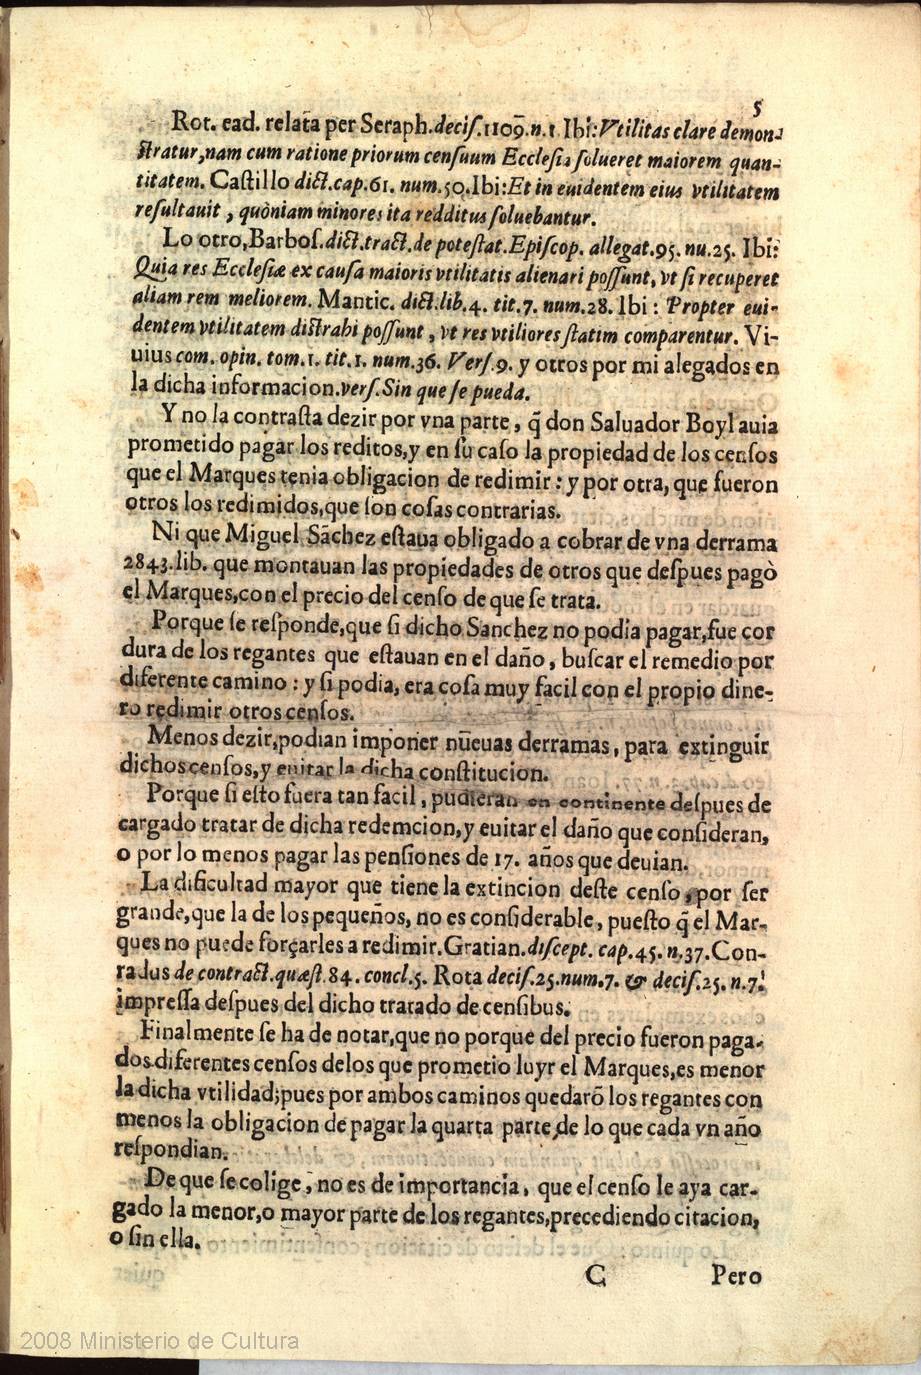 5
Rot. ead. relata per Seraph.decis.1109.n.1.Ibi:Vtilitas clare demon-
ſtratur,nam cum ratione priorum cenſuum Eccleſia ſolueret maiorem quan-
titatem. Caſtillo dict.cap.61. num.50.Ibi:Et in euidentem eius vtilitatem
reſultauit, quòniam minores ita redditus ſoluebantur.
Lo otro,Barboſ.dict.tract.de poteſtat.Epiſcop. allegat.95. nu.25. Ibi:
Quia res Eccleſiæ ex cauſa maioris vtilitatis alienari poſſunt, vt ſi recuperet
aliam rem meliorem. Mantic. dict.lib.4. tit.7. num.28. Ibi: Propter eui-
dentem vtilitatem diſtrahi poſſunt, vt res vtiliores ſtatim comparentur. Vi-
uius com. opin. tom.1. tit.1. num.36. Verſ.9. y otros por mi alegados en
la dicha informacion.verſ.Sin que ſe pueda.
Y no la contraſta dezir por vna parte, q̃ don Saluador Boyl auia
prometido pagar los reditos,y en ſu caſo la propiedad de los cenſos
que el Marques tenia obligacion de redimir: y por otra, que fueron
otros los redimidos,que ſon coſas contrarias.
Ni que Miguel Sãchez eſtaua obligado a cobrar de vna derrama
2843.lib. que montauan las propiedades de otros que deſpues pagò
el Marques,con el precio del cenſo de que ſe trata.
Porque ſe reſponde,que ſi dicho Sanchez no podia pagar,fue cor
dura de los regantes que eſtauan en el daño, buſcar el remedio por
diferente camino: y ſi podia, era coſa muy facil con el propio dine-
ro redimir otros cenſos.
Menos dezir,podian imponer nueuas derramas, para extinguir
dichos cenſos,y euitar la dicha conſtitucion.
Porque ſi eſto fuera tan facil, pudieran en continente deſpues de
cargado tratar de dicha redemcion,y euitar el daño que conſideran,
o por lo menos pagar las penſiones de 17. años que deuian.
La dificultad mayor que tiene la extincion deſte cenſo, por ſer
grande,que la de los pequeños, no es conſiderable, pueſto q̃ el Mar-
ques no puede forçarles a redimir.Gratian.diſcept. cap.45. n.37.Con-
radus de contract.quæſt.84. concl.5. Rota deciſ.25.num.7. & deciſ.25. n.7.
impreſſa deſpues del dicho tratado de cenſibus.
Finalmente ſe ha de notar,que no porque del precio fueron paga-
dos diferentes cenſos delos que prometio luyr el Marques,es menor
la dicha vtilidad;pues por ambos caminos quedarõ los regantes con
menos la obligacion de pagar la quarta parte,de lo que cada vn año
reſpondian.
De que ſe colige, no es de importancia, que el cenſo le aya car-
gado la menor,o mayor parte de los regantes,precediendo citacion,
o ſin ella.
C Pero
2008 Ministerio de Cultura